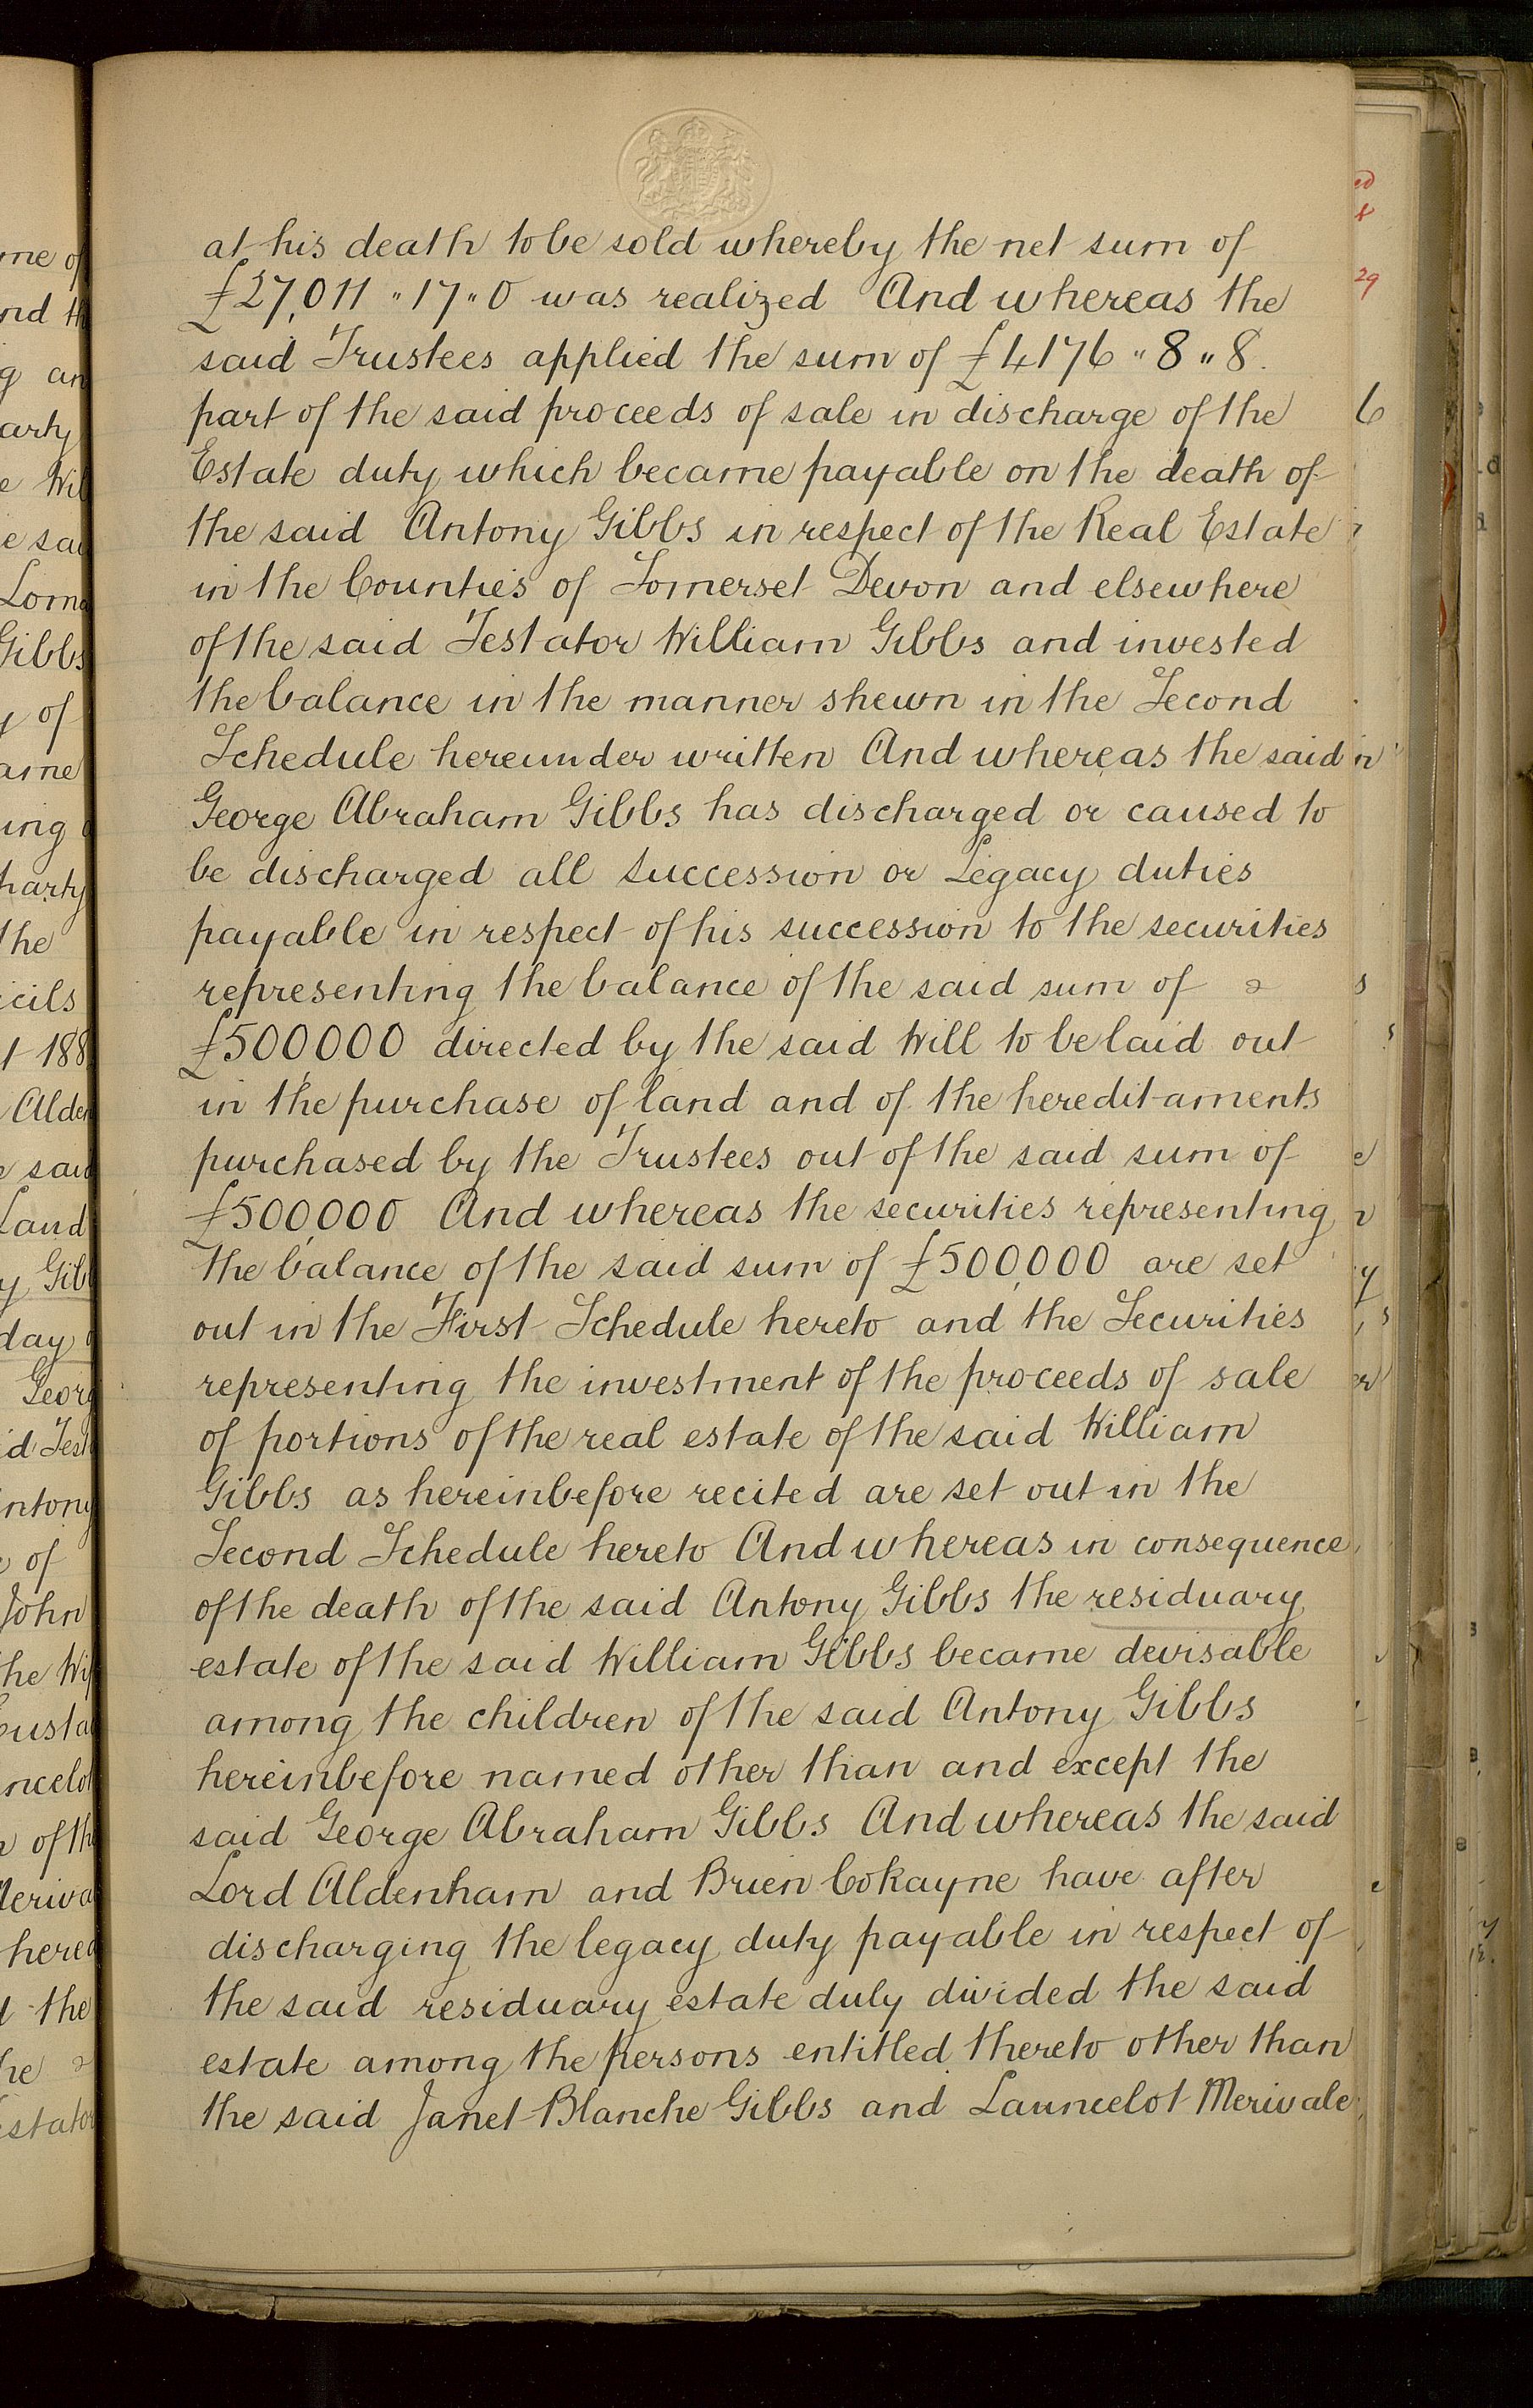 at his death to be sold whereby the net sum of
£27,011 " 17 " 0 was realized And whereas the
said Trustees applied the sum of £4176 " 8 " 8.
part of the said proceeds of sale in discharge of the
Estate duty which became payable on the death of
the said Antony Gibbs in respect of the Real Estate
in the Counties of Somerset Devon and elsewhere
of the said Testator William Gibbs and invested
the balance in the manner shewn in the Second
Schedule hereunder written And whereas the said
George Abraham Gibbs has discharged or caused to
be discharged all succession or Legacy duties
payable in respect of his succession to the securities
representing the balance of the said sum of
£500,000 directed by the said Will to be laid out
in the purchase of land and of the hereditaments
purchased by the Trustees out of the said sum of
£500,000 And whereas the securities representing
the balance of the said sum of £500,000 are set
out in the First Schedule hereto and the Securities
representing the investment of the proceeds of sale
of portions of the real estate of the said William
Gibbs as hereinbefore recited are set out in the
Second Schedule hereto And whereas in consequence
of the death of the said Antony Gibbs the residuary
estate of the said William Gibbs became devisable
among the children of the said Antony Gibbs
hereinbefore named other than and except the
said George Abraham Gibbs And whereas the said
Lord Aldenham and Brien Cokayne have after
discharging the legacy duty payable in respect of
the said residuary estate duly divided the said
estate among the persons entitled thereto other than
the said Janet Blanche Gibbs and Launcelot Merivale